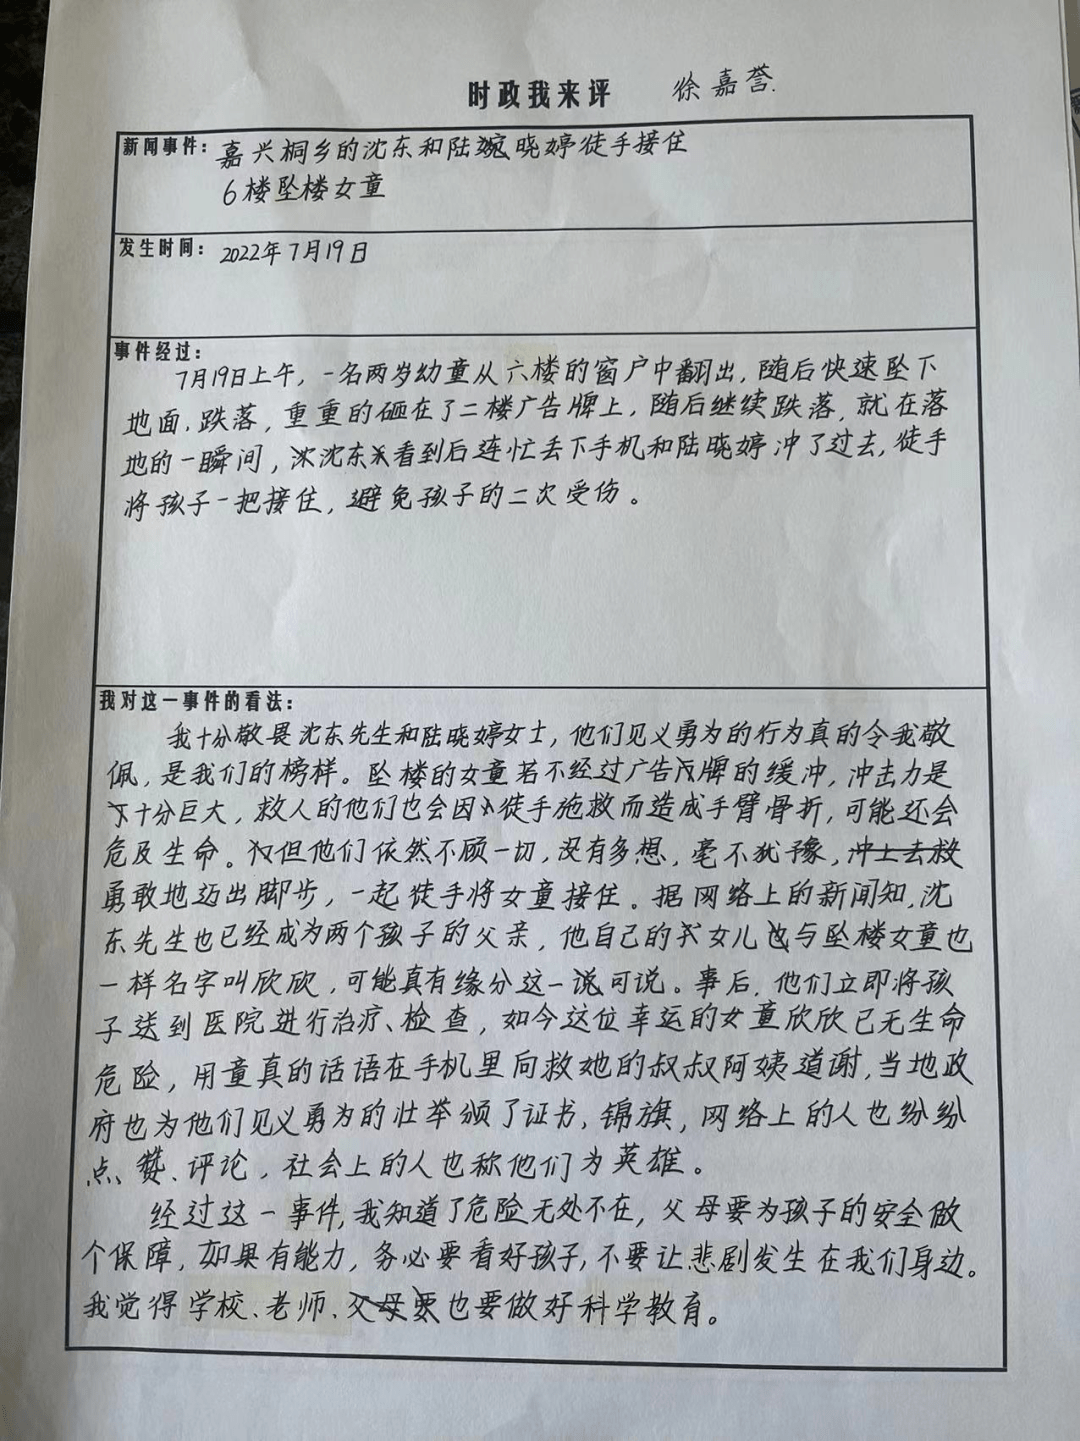 时政我来评 徐嘉誉.
新闻事件：嘉兴桐乡的沈东和陆晓婷徒手接住
6楼坠楼女童
发生时间：2022年7月19日
事件经过：
7月19日上午，一名两岁幼童从六楼的窗户中翻出，随后快速坠下
地面．跌落，重重的砸在了二楼广告牌上，随后继续跌落，就在落
地的一瞬间，沈东看到后连忙丢下手机和陆晓婷冲了过去，徒手
将孩子一把接住，避免孩子的二次受伤。
我对这一事件的看法：
我十分敬畏沈东先生和陆晓婷女士，他们见义勇为的行为真的令我敬
佩，是我们的榜样。坠楼的女童若不经过广告牌的缓冲，冲击力是
十分巨大，救人的他们也会因徒手施救而造成手臂骨折，可能还会
危及生命。但他们依然不顾一切，没有多想，毫不犹豫，冲上去救
勇敢地迈出脚步，一起徒手将女童接住。据网络上的新闻知，沈
东先生也已经成为两个孩子的父亲，他自己的女儿也与坠楼女童也
一样名字叫欣欣，可能真有缘分这一说可说。事后，他们立即将孩
子送到医院进行治疗、检查，如今这位幸运的女童欣欣已无生命
危险，用童真的话语在手机里向救她的叔叔阿姨道谢，当地政
府也为他们见义勇为的壮举颁了证书、锦旗，网络上的人也纷纷
点赞、评论，社会上的人也称他们为英雄。
经过这一事件，我知道了危险无处不在，父母要为孩子的安全做
个保障，如果有能力，务必要看好孩子，不要让悲剧发生在我们身边。
我觉得学校、老师、父母要也要做好科学教育。